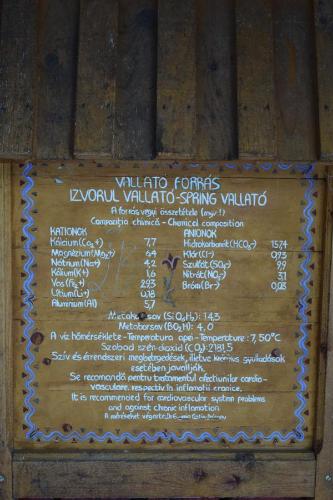 VALLATÓ FORRÁS
IZVORUL VALLATÓ-SPRING VALLATÓ
A forrás vegyi összetétele (mgr/l)
Compoziția chimică - Chemical composition
KATIONOK ANIONOK
Kálcium (Ca2+) 7,7 Hidrokarbonát (HCO3-) 157,4
Magnézium (Mg2+) 6,4 Klór (Cl-) 0,93
Nátrium (Na+) 4,2 Szulfát (SO4-) 9,9
Kálium (K+) 1,6 Nitrát (NO3-) 3,1
Vas (Fe2+) 29,3 Bróm (Br-) 0,03
Lítium (Li+) 0,18
Alumínium (Al) 5,7
Metakovasav (SiO3H2): 14,3
Metaborsav (BO2H): 4,0
A víz hőmérséklete - Temperatura apei - Temperature: 7,50°C
Szabad szén-dioxid (CO2): 2181,5
Szív és érrendszeri megbetegedések, illetve krónikus gyulladások
esetében javallják.
Se recomandă pentru tratamentul afecțiunilor cardio-
vasculare, respectiv în inflamații cronice.
It is recommended for cardiovascular system problems
and against chronic inflamation
A méréseket végezte: Dr.